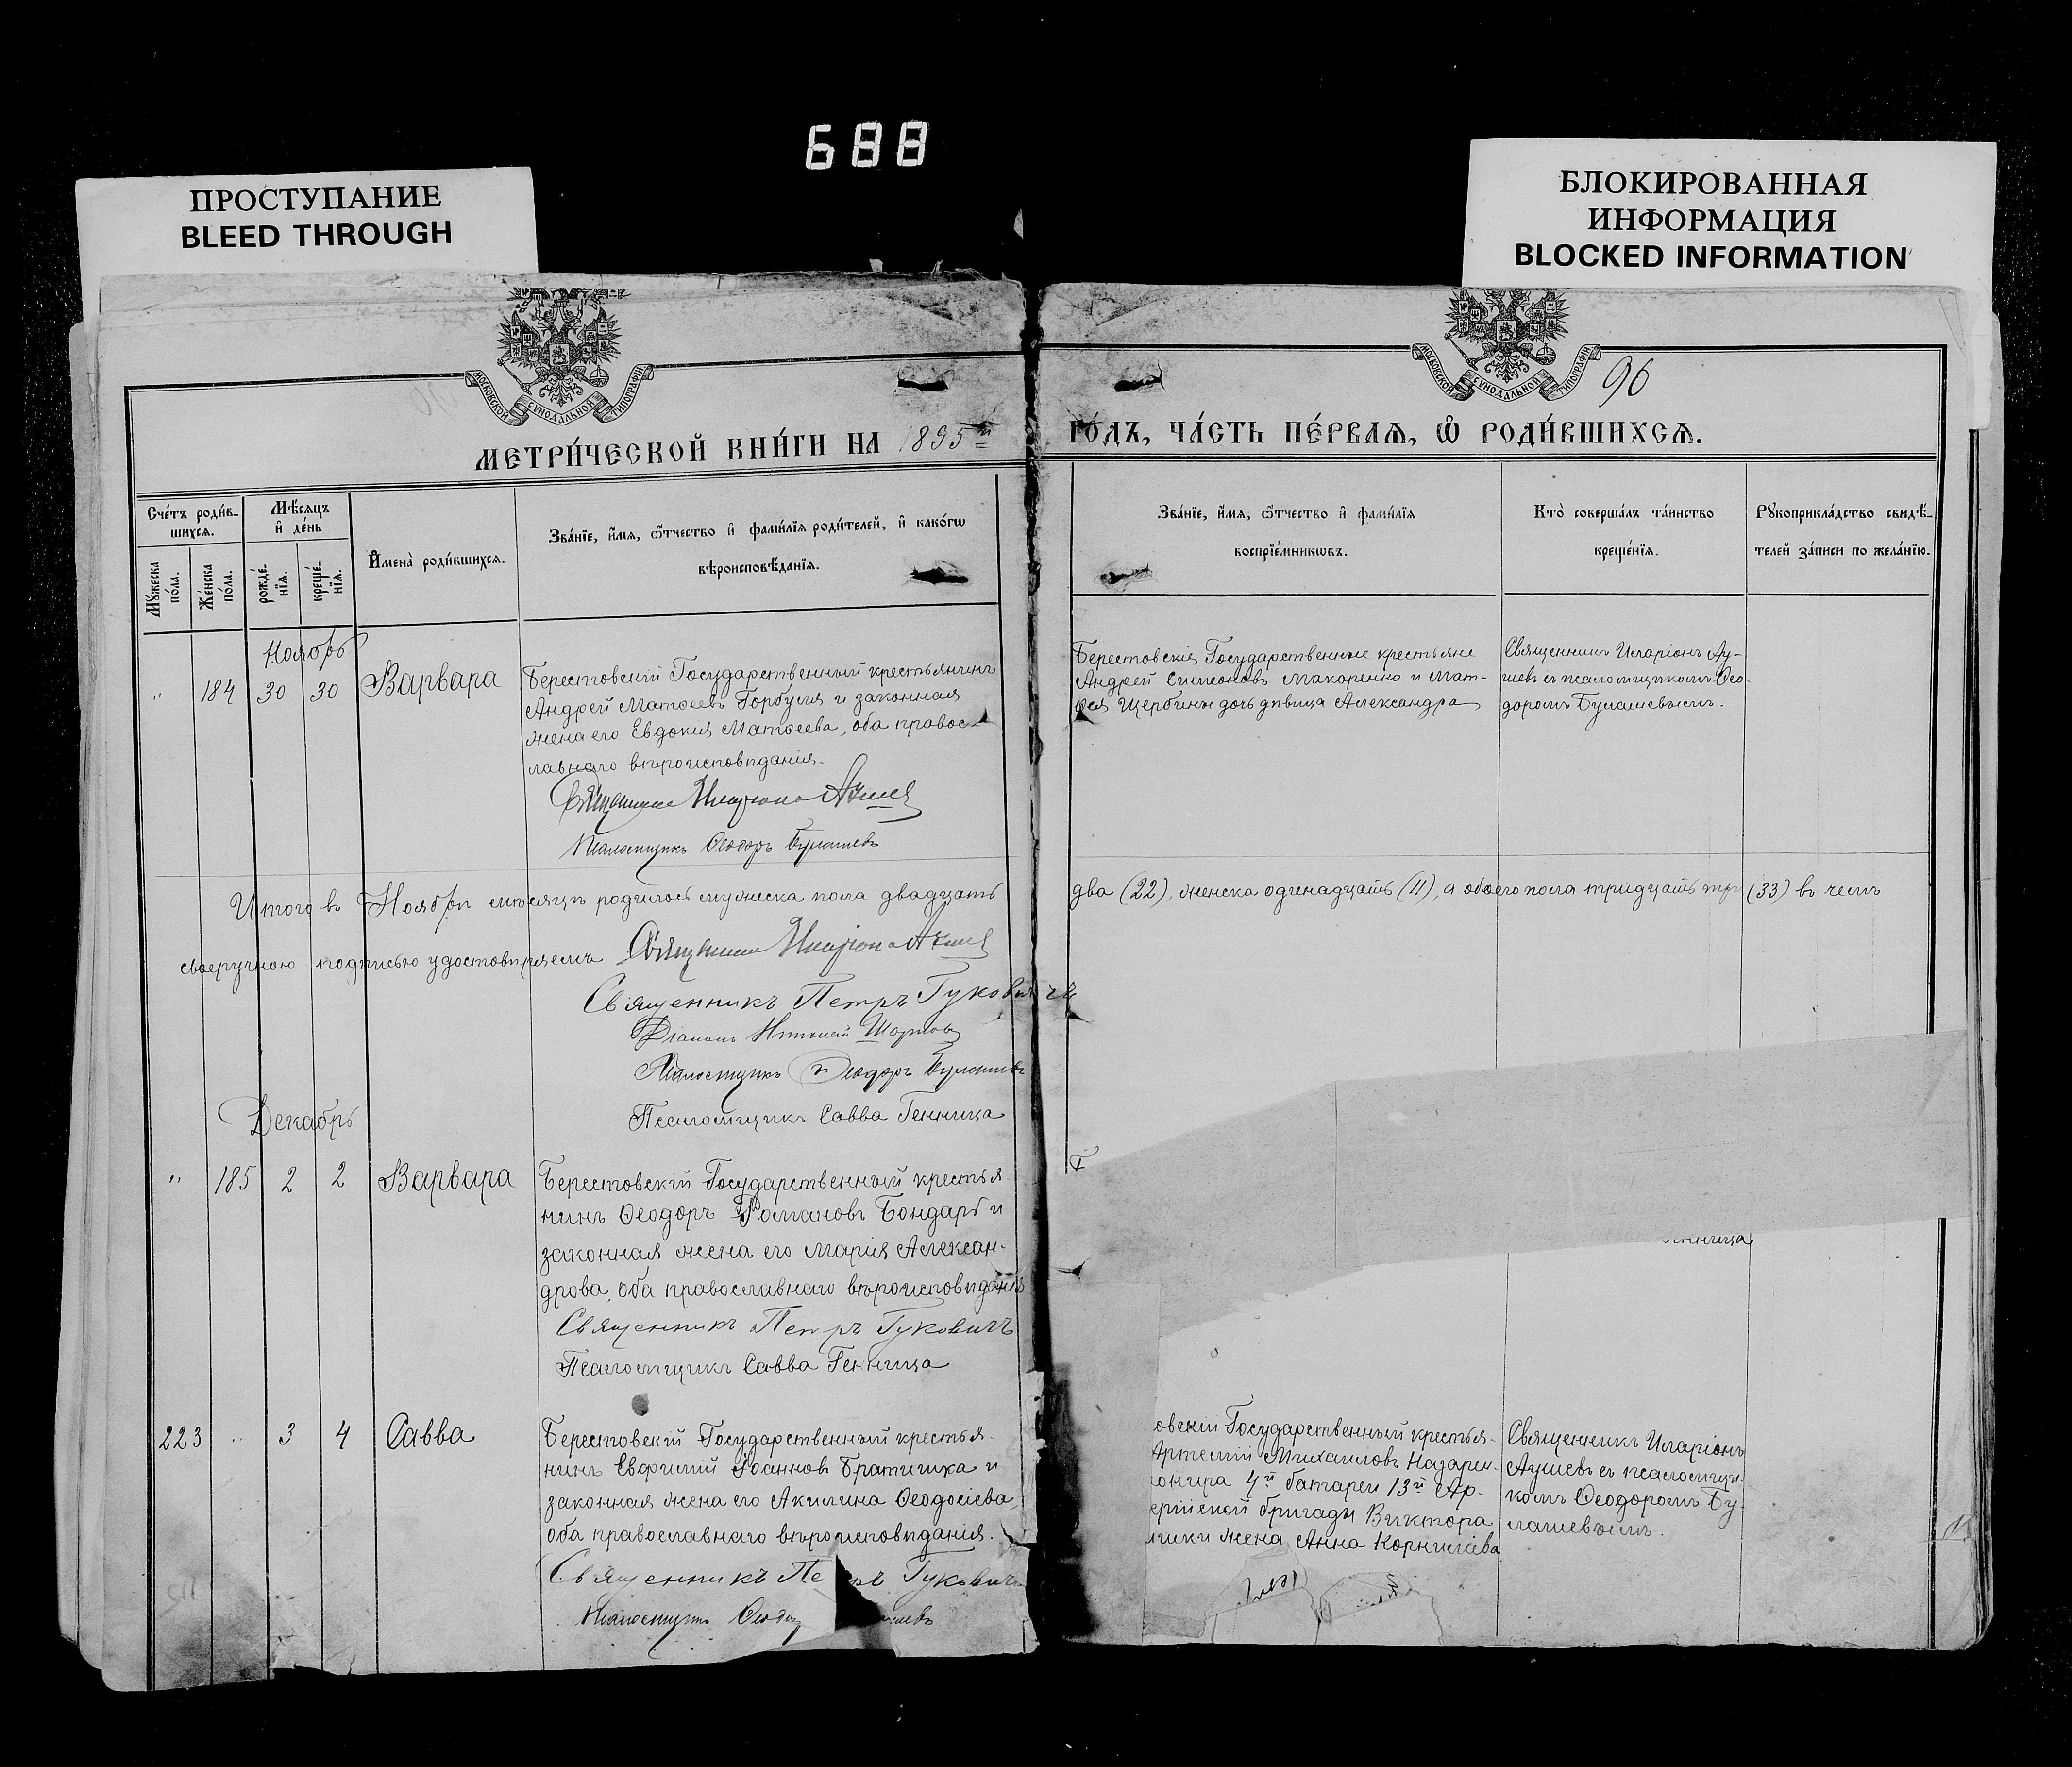 688
ПРОСТУПАНИЕ
BLEED THROUGH
БЛОКИРОВАННАЯ
ИНФОРМАЦИЯ
BLOCKED INFORMATION
МОСКОВСКОЙ СѴНОДАЛЬНОЙ ТИПОГРАФІИ
МОСКОВСКОЙ СѴНОДАЛЬНОЙ ТИПОГРАФІИ
96
МЕТРИ́ЧЕСКОЙ КНИ́ГИ НА 1895й
ГО́ДЪ, ЧА́СТЬ ПЕ́РВАѦ, Ѽ РОДИ́ВШИХСѦ.
Сче́тъ роди́в-
шихсѧ.
Мꙋжеска
по́ла.
Же́нска
по́ла.
Мѣ́сѧцъ
и҆ де́нь
рожде́-
нїѧ.
креще́-
нїѧ.
И҆мена̀ роди́вшихсѧ.
Зва́нїе, и҆́мѧ, ѻ҆́тчество и҆ фами́лїѧ роди́телей, и҆ како́гѡ
вѣроисповѣ́данїѧ.
Зва́нїе, и҆́мѧ, ѻ҆́тчество и҆ фами́лїѧ
воспрїе́мникѡвъ.
Кто̀ соверша́лъ та́инство
креще́нїѧ.
Рꙋкоприкла́дство свидѣ́-
телей за́писи по жела́нїю.
Ноябрь
" 184 30 30 Варвара
Берестовскій Государственный крестьянинъ
Андрей Матѳеевъ Горбуля и законная
жена его Евдокія Матѳеева, оба правос-
лавнаго вѣроисповѣданія.
Священникъ Иларіонъ Аушев
Псаломщикъ Ѳеодоръ Булашевъ
Берестовскія Государственные крестьяне
Андрей Симеоновъ Макаренко и Мат-
ѳея Щербины дочь дѣвица Александра
Священникъ Иларіонъ Ау-
шевъ съ псаломщикомъ Ѳео-
доромъ Булашевымъ.
Итого въ Ноябрѣ мѣсяцѣ родилось мужеска пола двадцать
два (22), женска одинадцать (11), а обоего пола тридцать три (33) въ чемъ
своеручною подписью удостовѣряемъ Священникъ Иларіонъ Аушев
Священникъ Петръ Гуковичъ
Діаконъ
Псаломщикъ Ѳеодоръ Булашевъ
Псаломщикъ Савва Генница
Декабрь
" 185 2 2 Варвара
Берестовскій Государственный крестья-
нинъ Ѳеодоръ Романовъ Бондарь и
законная жена его Марія Алексан-
дрова, оба православнаго вѣроисповѣданія
Священникъ Петръ Гуковичъ
Псаломщикъ Савва Генница
енница
223 " 3 4 Савва
Берестовскій Государственный крестья-
нинъ Евфимій Іоанновъ Братишка и
законная жена его Акилина Ѳеодосіева,
оба православнаго вѣроисповѣданія.
Священникъ Пе ръ Гуковичъ
Псаломщикъ Ѳеодо шевъ
овскій Государственный крестья-
Артемій Михаиловъ Назарен-
онира 4й батареи 13й Ар-
ерійской бригады Виктора
ики жена Анна Корнилієва
Священникъ Иларіонъ
Аушевъ съ псаломщи-
комъ Ѳеодоромъ Бу-
лашевымъ.